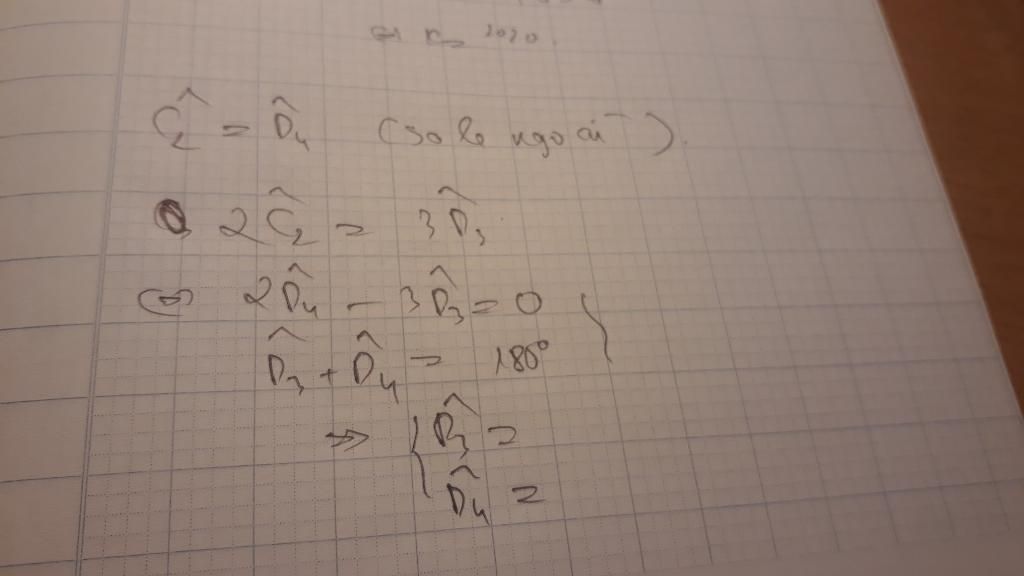 2020
Ĉ₂ = D̂₄ (so le ngoài)
2Ĉ₂ = 3D̂₃
⇔ 2D̂₄ - 3D̂₃ = 0 }
D̂₃ + D̂₄ = 180°
⇒ { D̂₃ =
D̂₄ =